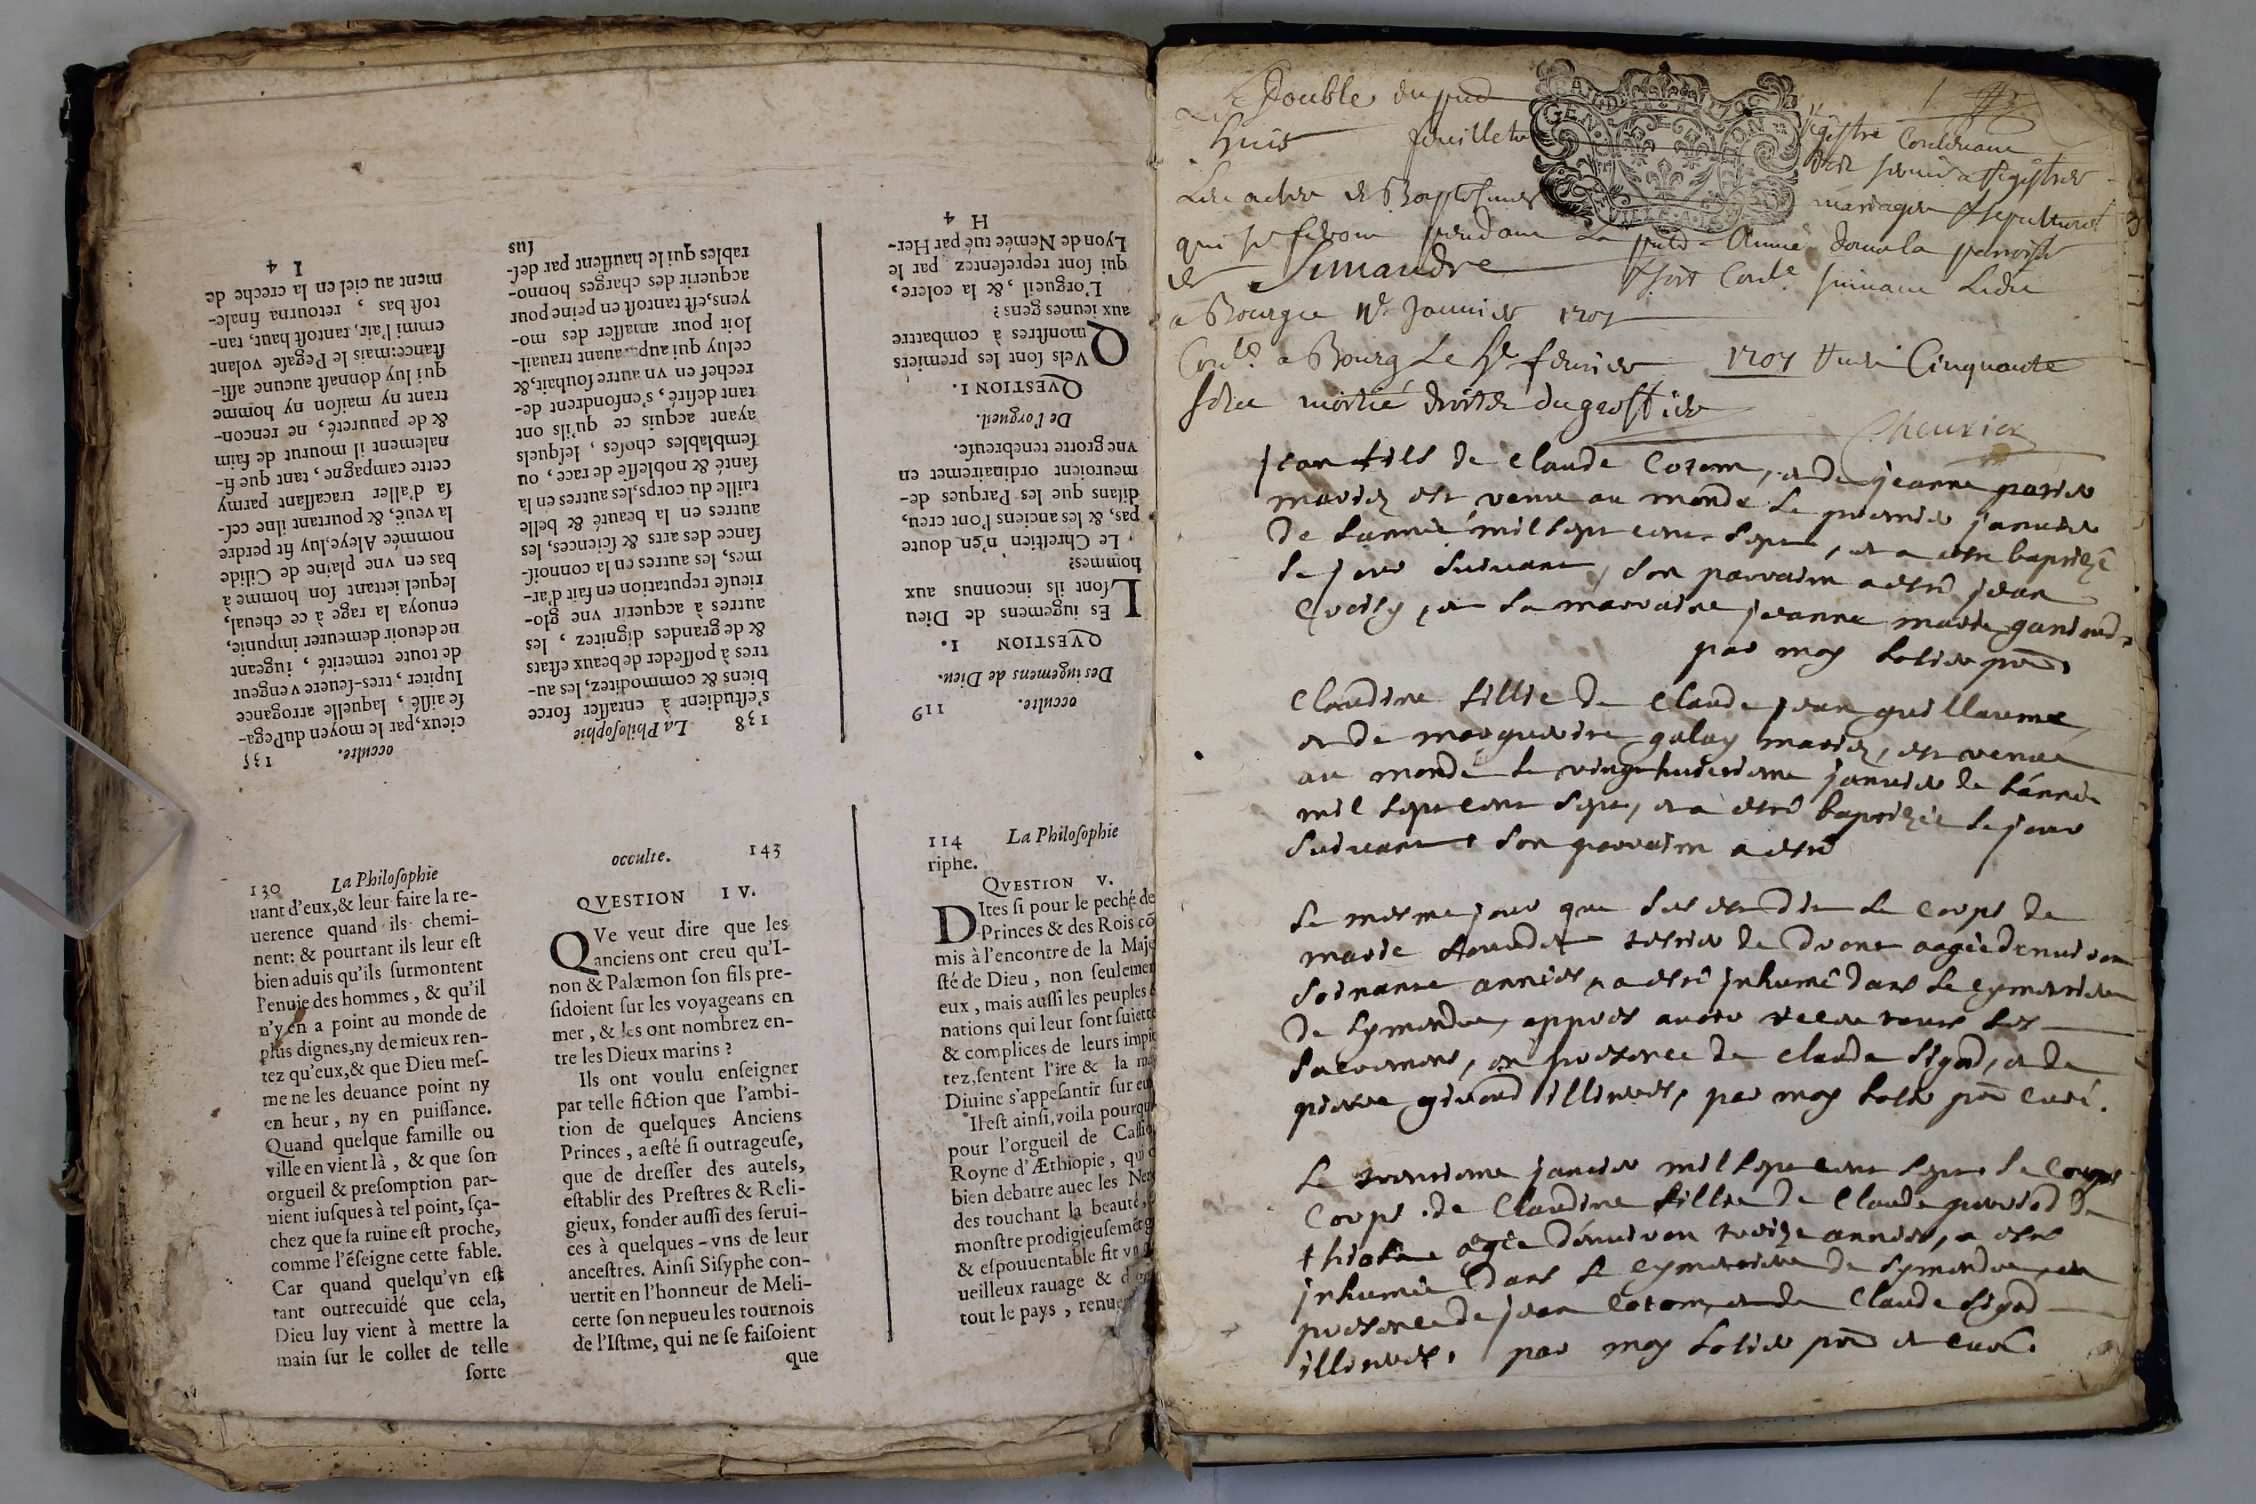 135 occulte.
cieux, par le moyen du Pega-
se aislé, laquelle arrogance
Iupiter, tres-ſeuere vengeur
de toute temerité, iugeant
ne deuoir demeurer impunie,
enuoya la rage à ce cheual,
lequel iettant ſon homme à
bas en vne plaine de Cilide
nommée Aleye, luy fit perdre
la veuë, & pourtant il ne ceſ-
ſa d'aller tracaſſant parmy
cette campagne, tant que fi-
nalement il mourut de faim
& de pauureté, ne rencon-
trant ny maiſon ny homme
qui luy dónnaſt aucune aſſi-
ſtance: mais le Pegaſe volant
emmi l'air, tantoſt haut, tan-
toſt bas, retourna finale-
ment au ciel en la creche de
I 4
138 La Philoſophie
s'eſtudient à entaſſer force
biens & commoditez, les au-
tres à poſſeder de beaux eſtats
& de grandes dignitez, les
autres à acquerir vne glo-
rieuſe reputation en fait d'ar-
mes, les autres en la connoiſ-
ſance des arts & ſciences, les
autres en la beauté & belle
taille du corps, les autres en la
ſanté & nobleſſe de race, ou
ſemblables choſes, leſquels
ayant acquis ce qu'ils ont
tant deſiré, s'enfondrent de-
rechef en vn autre ſouhait, &
celuy qui aupauant trauail-
loit pour amaſſer des mo-
yens, eſt tantoſt en peine pour
acquerir des charges honno-
rables qui le hauſſent par deſ-
ſus
occulte. 119
Des iugemens de Dieu.
QVESTION I.
LEs iugemens de Dieu
ſont ils inconnus aux
hommes?
Le Chreſtien n'en doute
pas, & les anciens l'ont creu,
diſans que les Parques de-
meuroient ordinairemet en
vne grotte tenebreuſe.
De l'orgueil.
QVESTION I.
QVels ſont les premiers
monſtres à combattre
aux ieunes gens?
L'orgueil, & la colere,
qui ſont repreſentez par le
Lyon de Nemée tué par Her-
H 4
130 La Philoſophie
uant d'eux, & leur faire la re-
uerence quand ils chemi-
nent: & pourtant ils leur eſt
bien aduis qu'ils ſurmontent
l'enuie des hommes, & qu'il
n'y en a point au monde de
plus dignes, ny de mieux ren-
tez qu'eux, & que Dieu meſ-
me ne les deuance point ny
en heur, ny en puiſſance.
Quand quelque famille ou
ville en vient là, & que ſon
orgueil & preſomption par-
uient iuſques à tel point, ſça-
chez que ſa ruine eſt proche,
comme l'éſeigne cette fable.
Car quand quelqu'vn eſt
tant outrecuidé que cela,
Dieu luy vient à mettre la
main ſur le collet de telle
ſorte
occulte. 143
QVESTION IV.
QVe veut dire que les
anciens ont creu qu'I-
non & Palæmon ſon fils pre-
ſidoient ſur les voyageans en
mer, & les ont nombrez en-
tre les Dieux marins?
Ils ont voulu enſeigner
par telle fiction que l'ambi-
tion de quelques Anciens
Princes, a eſté ſi outrageuſe,
que de dreſſer des autels,
eſtablir des Preſtres & Reli-
gieux, fonder auſſi des ſerui-
ces à quelques-vns de leur
anceſtres. Ainſi Siſyphe con-
uertit en l'honneur de Meli-
certe ſon nepueu les tournois
de l'Iſtme, qui ne ſe faiſoient
que
114 La Philoſophie
riphe.
QVESTION V.
DItes ſi pour le peché de
Princes & des Rois cõ
mis à l'encontre de la Maje
ſté de Dieu, non ſeulemen
eux, mais auſſi les peuples &
nations qui leur ſont ſuiette
& complices de leurs impie
tez, ſentent l'ire & la ma
Diuine s'appeſantir ſur eux
Il eſt ainſi, voila pourquo
pour l'orgueil de Caſſio
Royne d'Æthiopie, qui o
bien debatre auec les Ner
des touchant la beauté,
monſtre prodigieuſemẽt g
& eſpouuentable fit vn
ueilleux rauage &
tout le pays, renuer
Double du pnt registre Contenant
huit feuillets
Les actes de Baptesmes mariages & sepultures
qui se feront pendant La pnte Année dans la parroisse
de Simandre
a Bourg Janvier 1707
a Bourg Le fevrier 1707 Cinquante
sols moitié droits du greffier
Chevrier
jean fils de claude Cotom, et de jeanne
mariez est venu au monde Le premier janvier
De Lannée mil sept cent sept, et a esté baptizé
Le jour suivant, son parrain a esté jean
et sa marraine jeanne marie
par moy
Claudine fillie De Claude jean guillaume
et De marguerite galay mariez, est venue
au monde Le vingthuictieme janvier de Lannée
mil sept cent sept, et a esté baptizée Le jour
suivant son parrain a esté
Le mesme jour que sus est dit Le Corps De
marie De Dront aagée denviron
Soixante années, a esté jnhumé Dans Le Cymetiere
De Symandre, appres avoir receu tous Les
Sacremens, en presence De claude Sigod, et De
pierre girod illiterés, par moy curé.
Le trentieme janvier mil sept cent sept Le Corps
Corps De Claudine fillie De Claude De
thiole agée Denviron treize années, a esté
jnhumée Dans Le Cymetiere De Symandre, en
presence De jean Cotom, et De Claude Sigod
illiterés, par moy et curé.